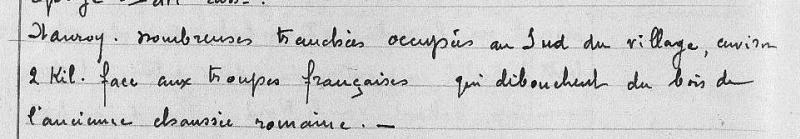 Nauroy. nombreuses tranchées occupées au Sud du village, environ
2 Kil. face aux troupes françaises qui débouchent du bois de
l'ancienne chaussée romaine. —